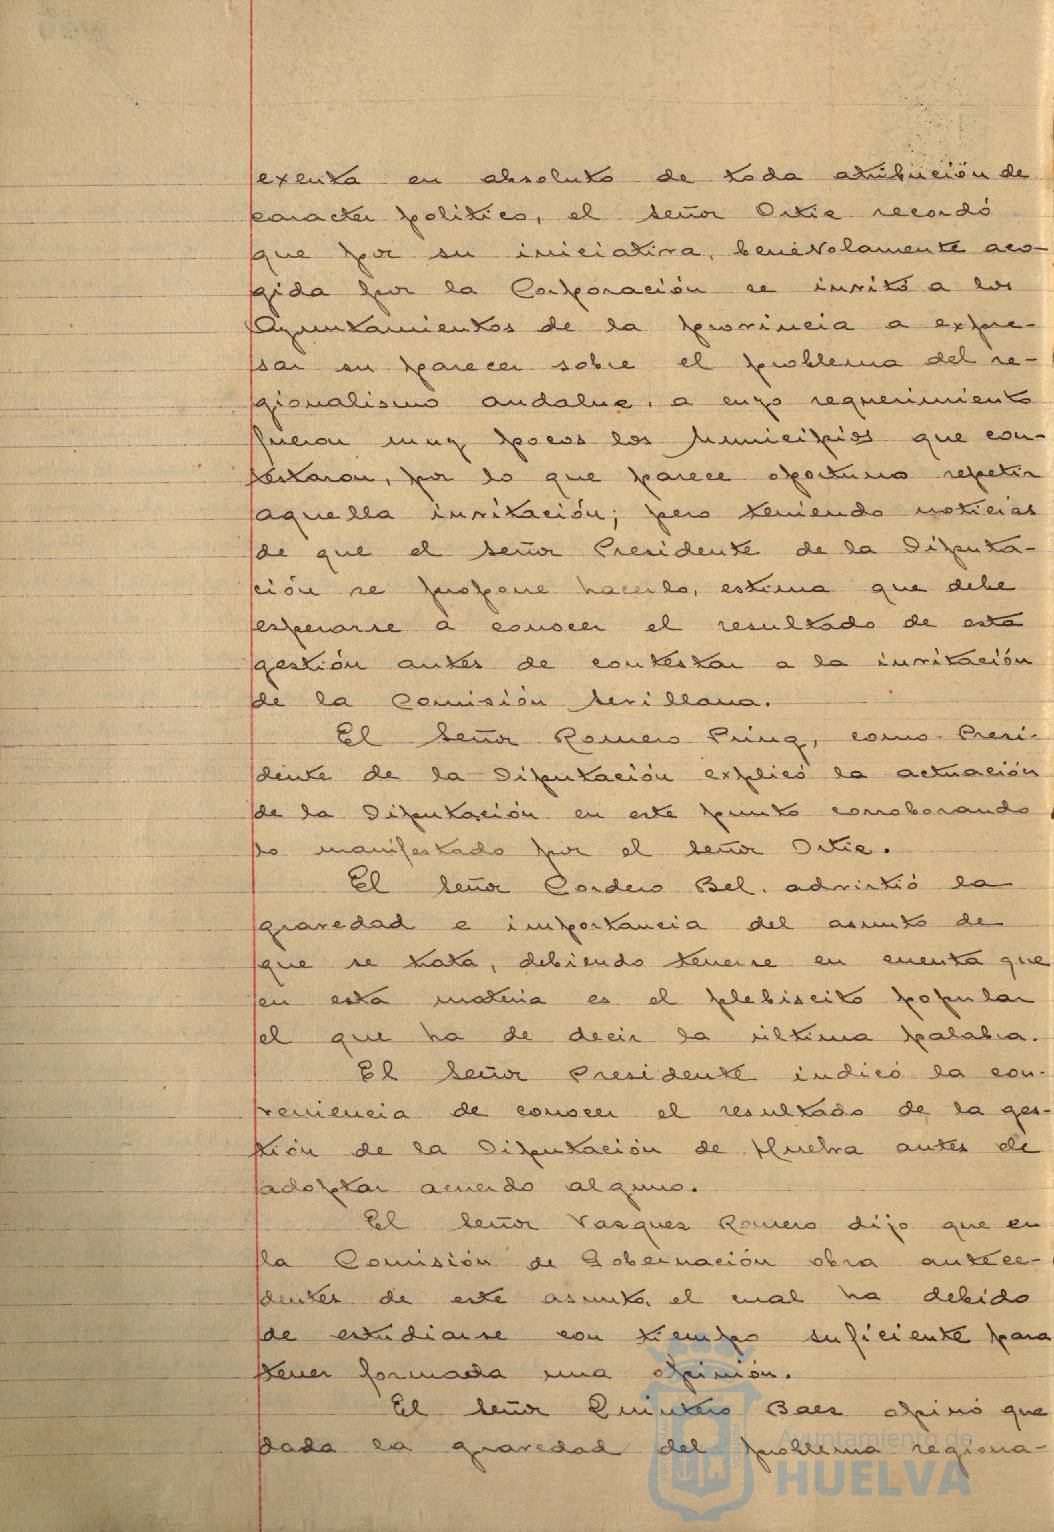 exenta en absoluto de toda atribución de
caracter politico, el Señor Ortiz recordó
que por su iniciativa, benévolamente aco-
gida por la Corporación se invitó a los
Ayuntamientos de la provincia a expre-
sar su parecer sobre el problema del re-
gionalismo andaluz, a cuyo requerimiento
fueron muy pocos los Municipios que con-
testaron, por lo que parece oportuno repetir
aquella invitación; pero teniendo noticias
de que el Señor Presidente de la Diputa-
ción se propone hacerlo, estima que debe
esperarse a conocer el resultado de esta
gestión antes de contestar a la invitación
de la Comisión Sevillana.
El Señor Romero Pring, como Presi-
dente de la Diputación explicó la actuación
de la Diputación en este punto corroborando
lo manifestado por el Señor Ortiz.
El Señor Cordero Bel. advirtió la
gravedad e importancia del asunto de
que se trata, debiendo tenerse en cuenta que
en esta materia es el plebiscito popular
el que ha de decir la última palabra.
El Señor Presidente indicó la con-
veniencia de conocer el resultado de la ges-
tión de la Diputación de Huelva antes de
adoptar acuerdo alguno.
El Señor Vasquez Romero dijo que en
la Comisión de Gobernación obra antece-
dentes de este asunto, el cual ha debido
de estudiarse con tiempo suficiente para
tener formada una opinión.
El Señor Quintero Baez opinó que
dada la gravedad del problema regiona-
Ayuntamiento de
HUELVA